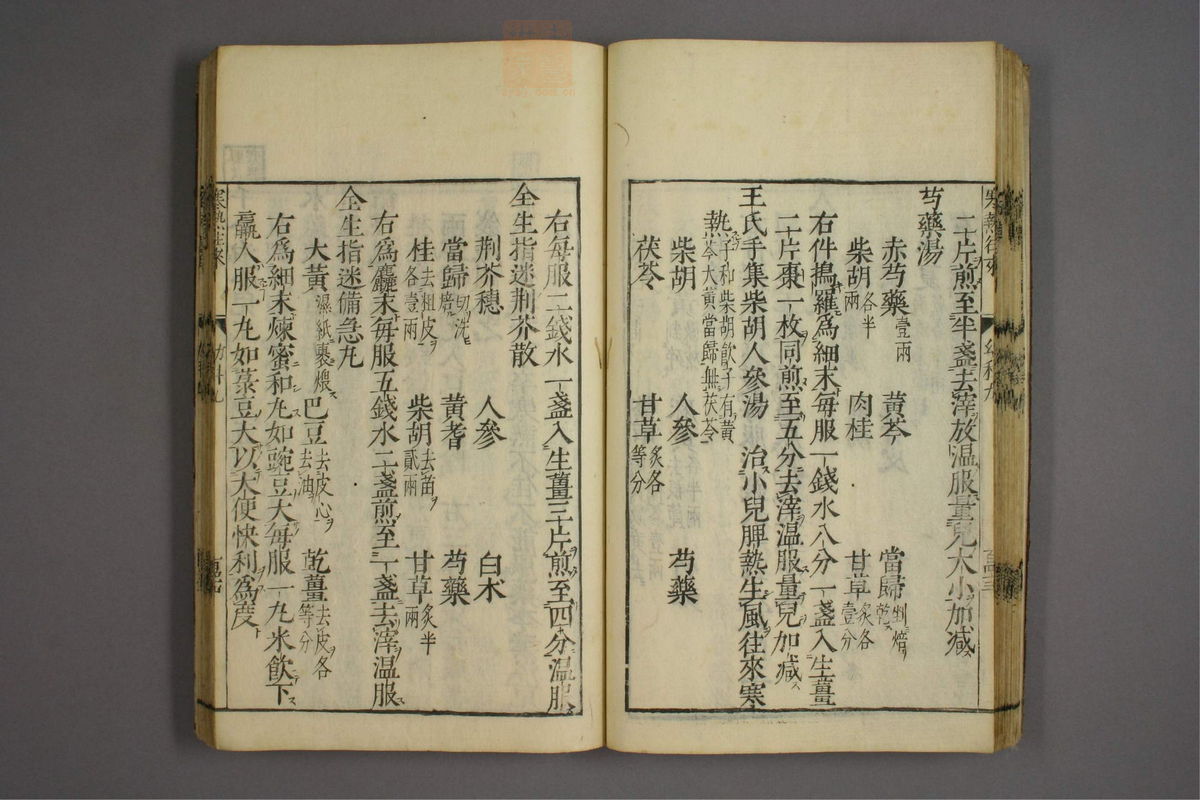 二十片煎至半盞去滓放温服量兒大小加减
芍藥湯
赤芍藥壹兩 黃芩 當歸剉焙乾
柴胡各半兩 肉桂 甘草炙各壹分
右件搗羅爲細末每服一錢水八分一盞入生薑
二片棗一枚同煎至五分去滓温服量兒加减
王氏手集柴胡人參湯 治小兒脾熱生風往來寒
熱子和柴胡飲子有黃芩大黃當歸無茯苓
柴胡 人參 芍藥
茯苓 甘草炙各等分
右每服二錢水一盞入生薑三片煎至四分温服
全生指迷荆芥散
荆芥穗 人參 白术
當歸切洗焙 黃耆 芍藥
桂去粗皮各壹兩 柴胡去苗貳兩 甘草炙半兩
右爲麤末每服五錢水二盞煎至一盞去滓温服
全生指迷備急丸
大黃濕紙裹煨 巴豆去皮心去油 乾薑去皮各等分
右爲細末煉蜜和丸如豌豆大每服一丸米飲下
羸人服一丸如菉豆大以大便快利爲度